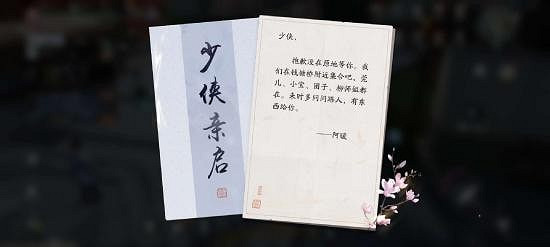 少侠亲启
少侠，
抱歉没在原地等你。我
们在钱塘桥附近集合吧，莞
儿、小宝、团子、杨婶姐都
在。来时多问问路人，有东
西给你。
——阿暖